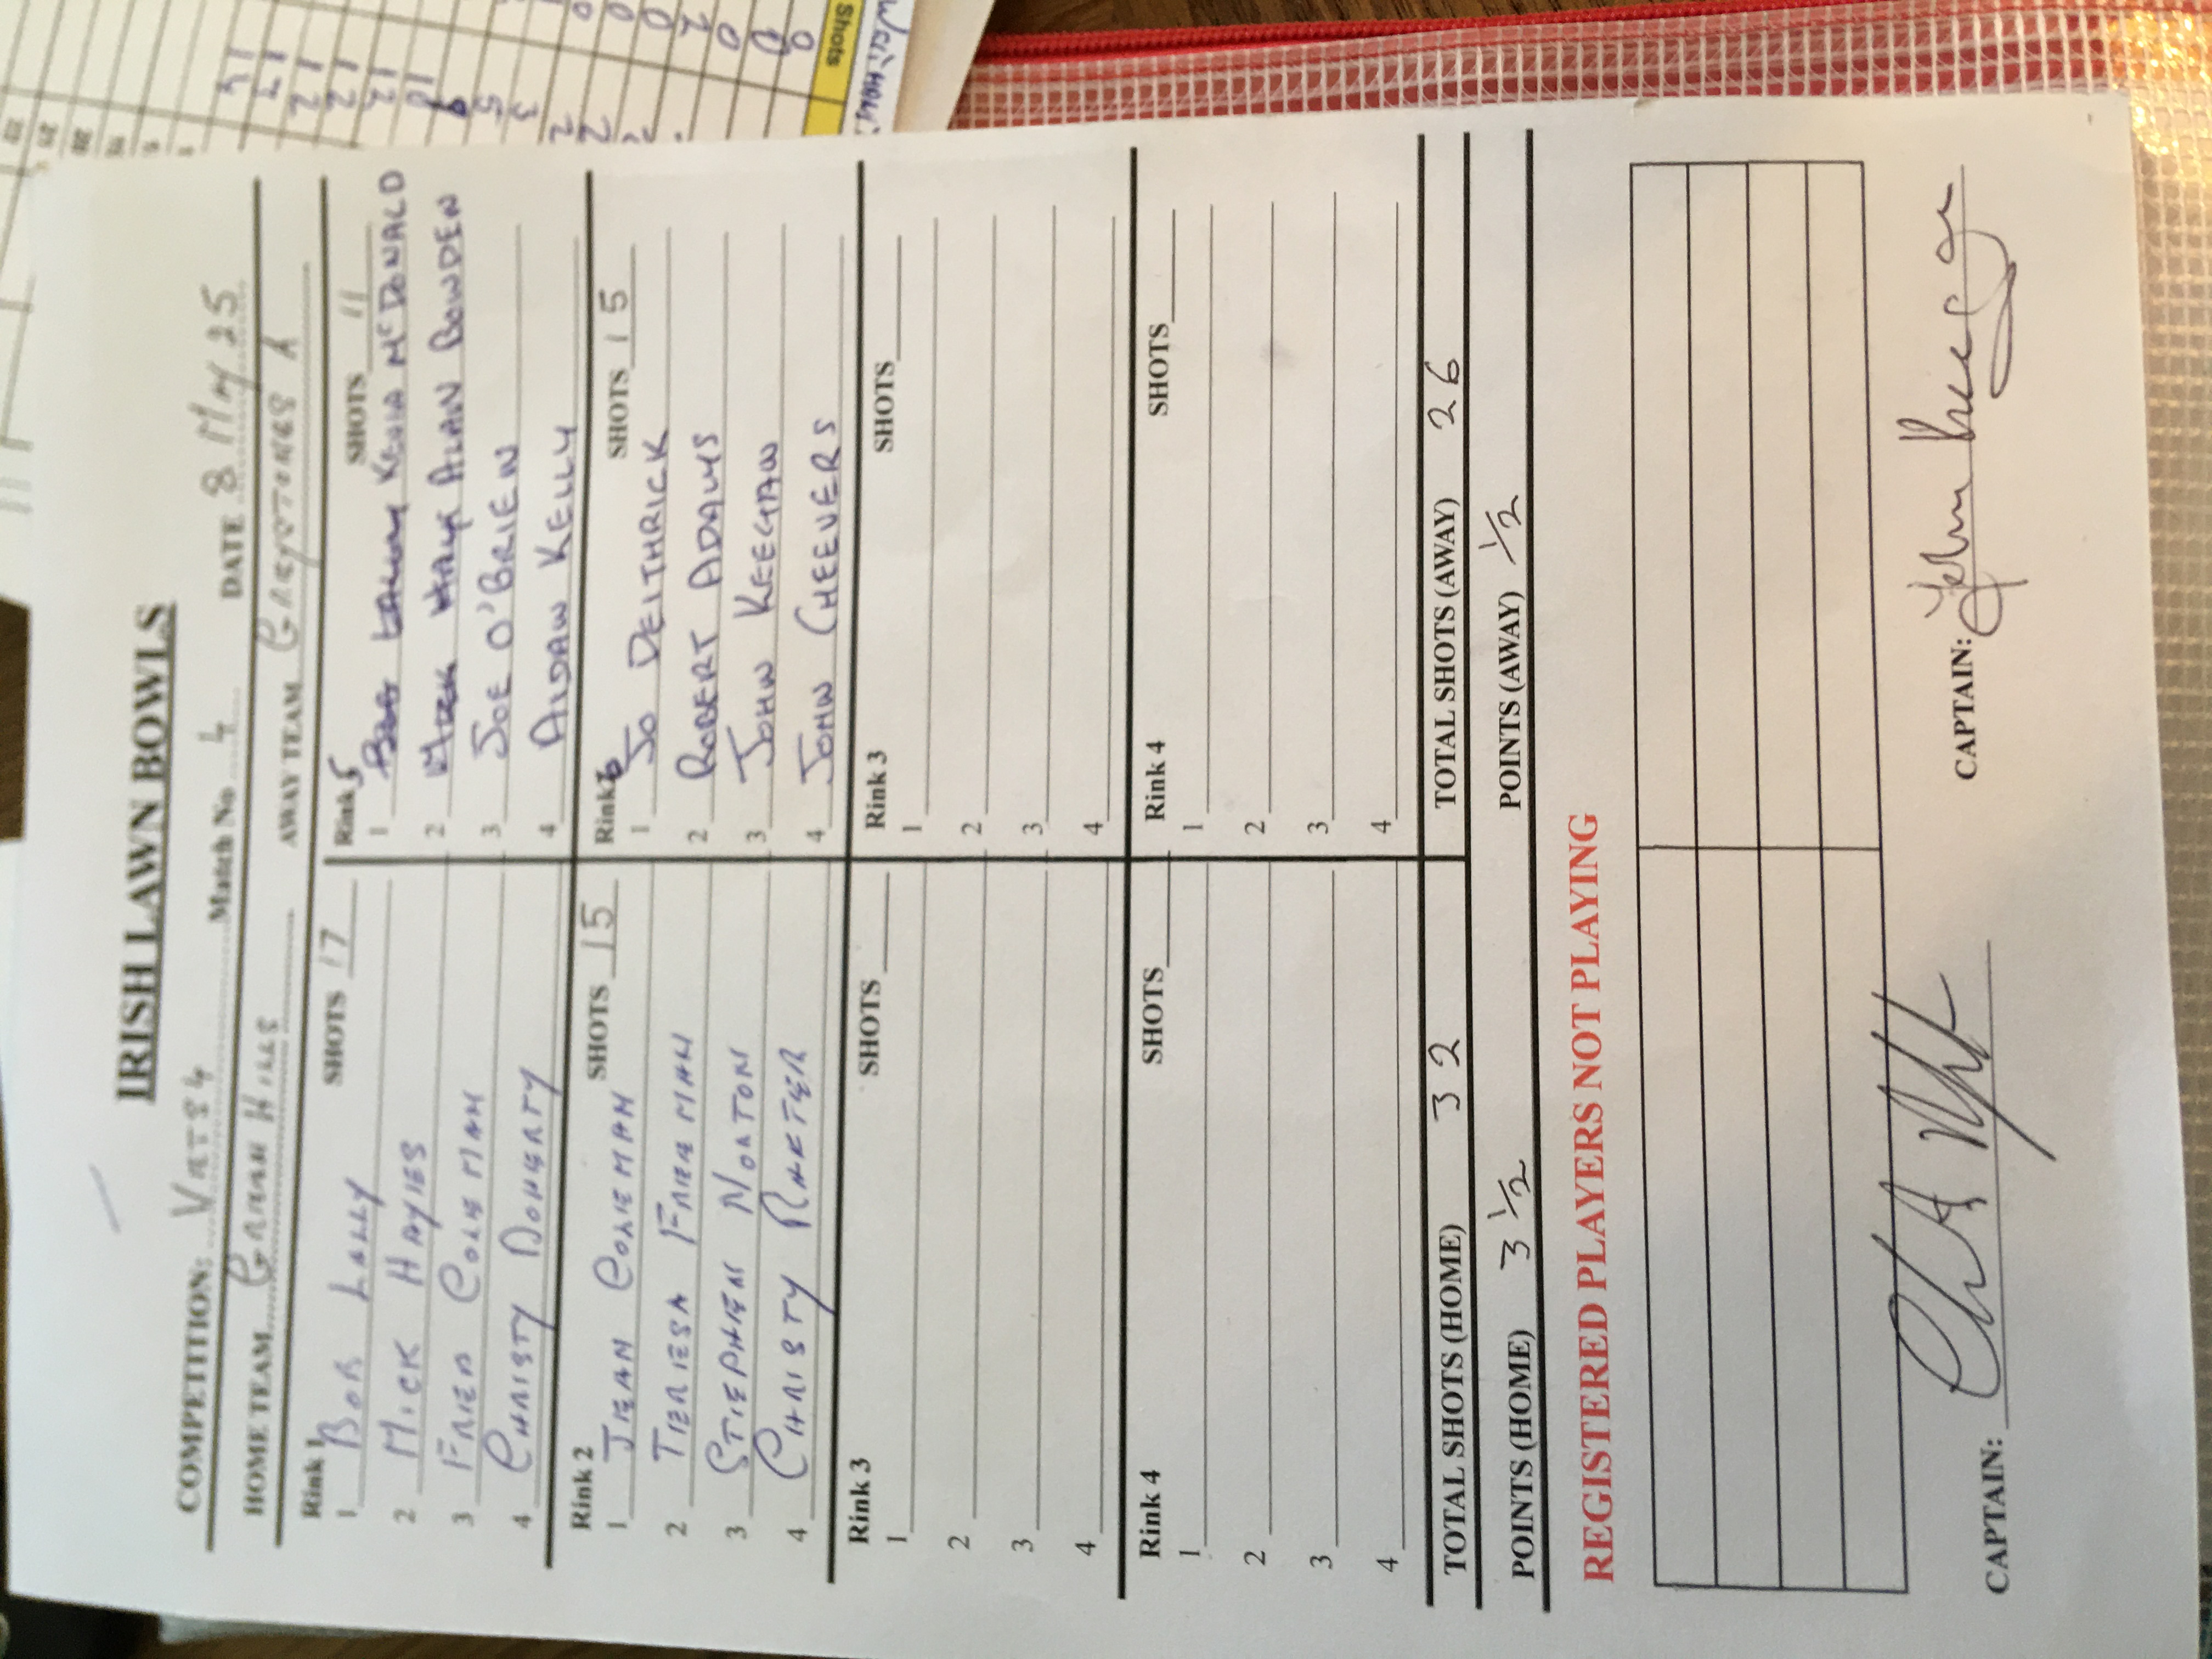 IRISH LAWN BOWLS
COMPETITION: VETS 4 Match No 4 DATE 8 MAY 25
HOME TEAM GRANGE HILLS AWAY TEAM GREYSTONES A
Rink 1 SHOTS 17 Rink 5 SHOTS 11
1 BOB LALLY 1 KEVIN McDONALD
2 MICK HAYES 2 ALAN BOWDEN
3 FRED COLEMAN 3 JOE O'BRIEN
4 CHRISTY DOHERTY 4 AIDAN KELLY
Rink 2 SHOTS 15 Rink 6 SHOTS 15
1 JEAN COLEMAN 1 JO DEITHRICK
2 TERESA FREEMAN 2 ROBERT ADAMS
3 STEPHEN NORTON 3 JOHN KEEGHAN
4 CHRISTY 4 JOHN CHEEVERS
Rink 3 SHOTS Rink 3 SHOTS
1 1
2 2
3 3
4 4
Rink 4 SHOTS Rink 4 SHOTS
1 1
2 2
3 3
4 4
TOTAL SHOTS (HOME) 32 TOTAL SHOTS (AWAY) 26
POINTS (HOME) 3 1/2 POINTS (AWAY) 1/2
REGISTERED PLAYERS NOT PLAYING
CAPTAIN: CAPTAIN: John
Shots